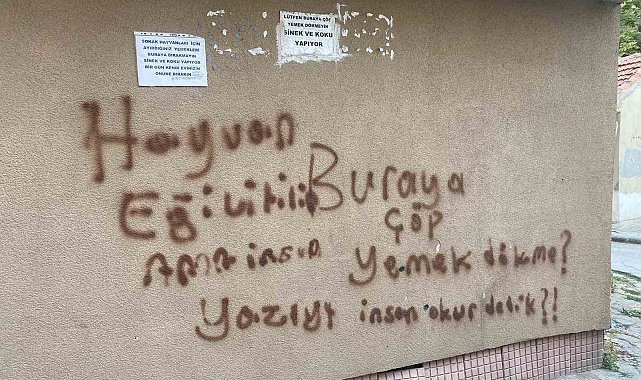 SOKAK HAYVANLARI İÇİN
AYIRDIĞINIZ YEMEKLERİ
BURAYA BIRAKMAYIN
SİNEK VE KOKU YAPIYOR
BİR GÜN KENDİ EVİNİZİN
ÖNÜNE BIRAKIN
LÜTFEN BURAYA ÇÖP
YEMEK DÖKMEYİN
SİNEK VE KOKU
YAPIYOR
Hayvan
Eğitilir
AMA insan
Buraya
ÇÖP
yemek dökme?
yazıyı insan okur dedik?!